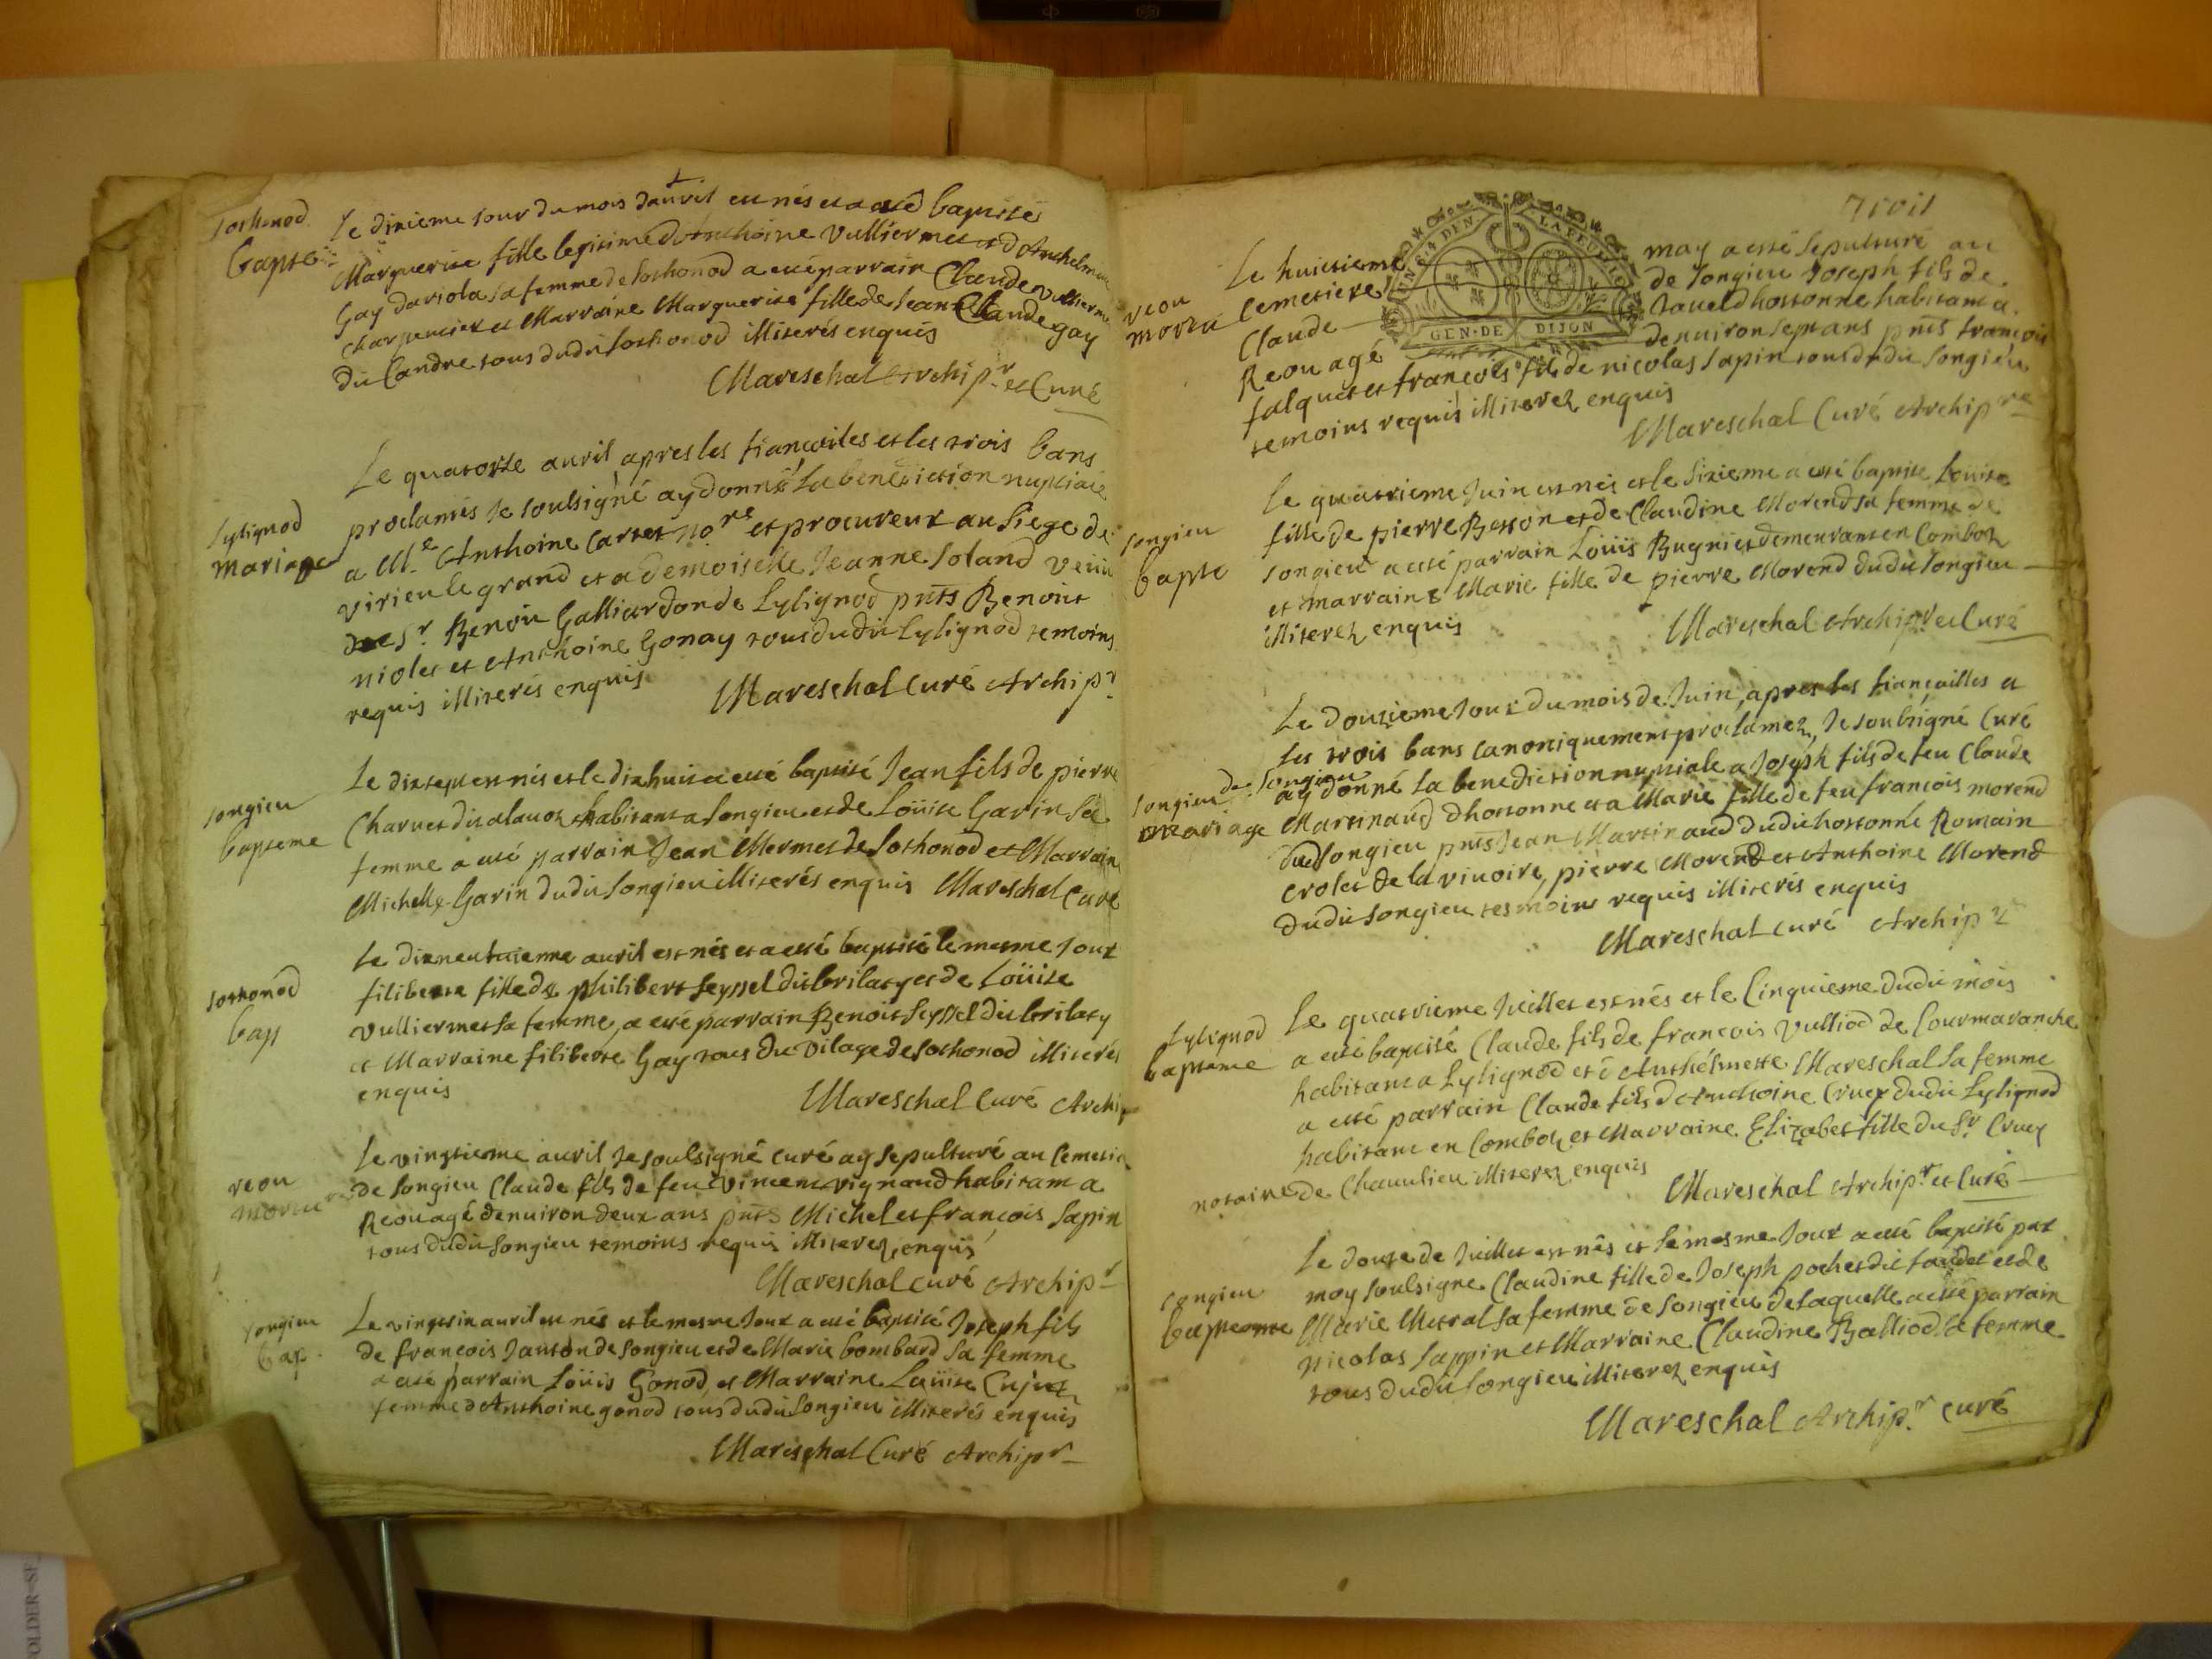 Sothonod
bapte
Le dixieme jour du mois d'auvril est nés et a esté baptisée
Marguerite fille legitime d'Anthoine Vulliermet et d'Anthelme
Gay dariola sa femme de Sothonod a esté parrain Claude Vullierme
charpentier et Marraine Marguerite fille de Jean Claude gay
du Candre tous dudit Sothonod illiterés enquis
Mareschal Archip.r et Curé
Lylignod
mariage
Le quatorze auril apres les fiançailes et les trois bans
proclamés Je soubsigné ay donné la benediction nuptiale
a M.e Anthoine Cartet no.re et procureur au Siege de
virieu le grand et a demoiselle Jeanne Soland veuue
de S.r Benoit Galliardon de Lylignod pnts Benoit
niolet et Anthoine Gonay tous dudit Lylignod temoins
requis illiterés enquis
Mareschal Curé Archip.r
songieu
bapteme
Le dixsept est nés et le dixhuit a esté baptisé Jean fils de pierre
Charuet dit alauoz habitant a Songieu et de Loüise Garin sa
femme a esté parrain Jean Mermet de Sothonod et Marraine
Michelle Garin dudit Songieu illiterés enquis Mareschal Curé
sothonod
bap
Le dixneufuieme auril est nés et a esté baptisé le mesme Jour
filiberte fille de philibert Seyssel dit brilaty et de Loüise
Vulliermet sa femme, a esté parrain Benoit Seyssel dit brilaty
et Marraine filiberte Gay tous du vilage de Sothonod illiterés
enquis
Mareschal Curé Archip
reou
mortu
Le vingtieme auril Je soulsigné curé ay sepulturé au Cemetie
de Songieu Claude fils de feu Vincent vignaud habitant a
Reou agé denuiron deux ans pnts Michel et françois Sapin
tous dudit Songieu temoins requis illiterez, enquis
Mareschal curé Archip.r
songieu
bap.
Le vingtsix auril est nés et le mesme Jour a esté baptisé Joseph fils
de françois Janton de Songieu et de Marie bombard sa femme
a esté parrain Loüis Gonod, et Marraine Loüise Cujuz
femme d'Anthoine gonod tous dudit Songieu illiterés enquis
Mareschal Curé Archip.r
reou
mortu
Le huictieme may a esté Sepulturé au
Cemetiere de Songieu Joseph fils de
Claude Jaueld hostonne habitant a
Reou agé denuiron Sept ans pnts françois
falquet et françois fils de nicolas Sapin tous dudit Songieu
temoins requis illiterez enquis
GEN·DE DIJON
Mareschal Curé Archip.re
songieu
bapte
Le quatrieme Juin est nés et le Sixieme a esté baptise Loüise
fille de pierre Besson et de Claudine Morend sa femme de
songieu a esté parrain Loüis Bugniet demeurant en Comboz
et marraine Marie fille de pierre Morend dudit Songieu
illiterez enquis
Mareschal Archip.r et Curé
songieu
mariage
Le douzieme Jour du mois de Juin, apres les fiançailles et
les trois bans canoniquement proclamez, Je soubsigné Curé
de Songieu
ay donné la benediction nuptiale a Joseph fils de feu Claude
Martinaud dhostonne et a Marie fille de feu françois morend
dud Songieu pnts Jean Martinaud dudit hostonne Romain
crolet de la viuoire, pierre Morend et Anthoine Morend
dudit Songieu tesmoins requis illiterés enquis
Mareschal curé Archip.r
Lylignod
bapteme
Le quatrieme Juillet est nés et le Cinquieme dudit mois
a esté baptisé Claude fils de françois Vulliod de Courmaranche
habitant a Lylignod et d'Anthelmette Mareschal sa femme
a esté parrain Claude fils d'Anthoine Cruex dudit Lylignod
habitant en Comboz et Marraine Elizabet fille du S.r Cruex
notaire de Chauulieu illiterez enquis
Mareschal Archip.r et Curé
songieu
bapteme
Le douze de Juillet est nés et le mesme Jour a esté baptisé par
moy soulsigne Claudine fille de Joseph pochet dit faudet et de
Marie Metral sa femme de Songieu de laquelle a esté parrain
nicolas Sappin et Marraine Claudine Balliod sa femme
tous dudit Songieu illiterez enquis
Mareschal Archip.r curé